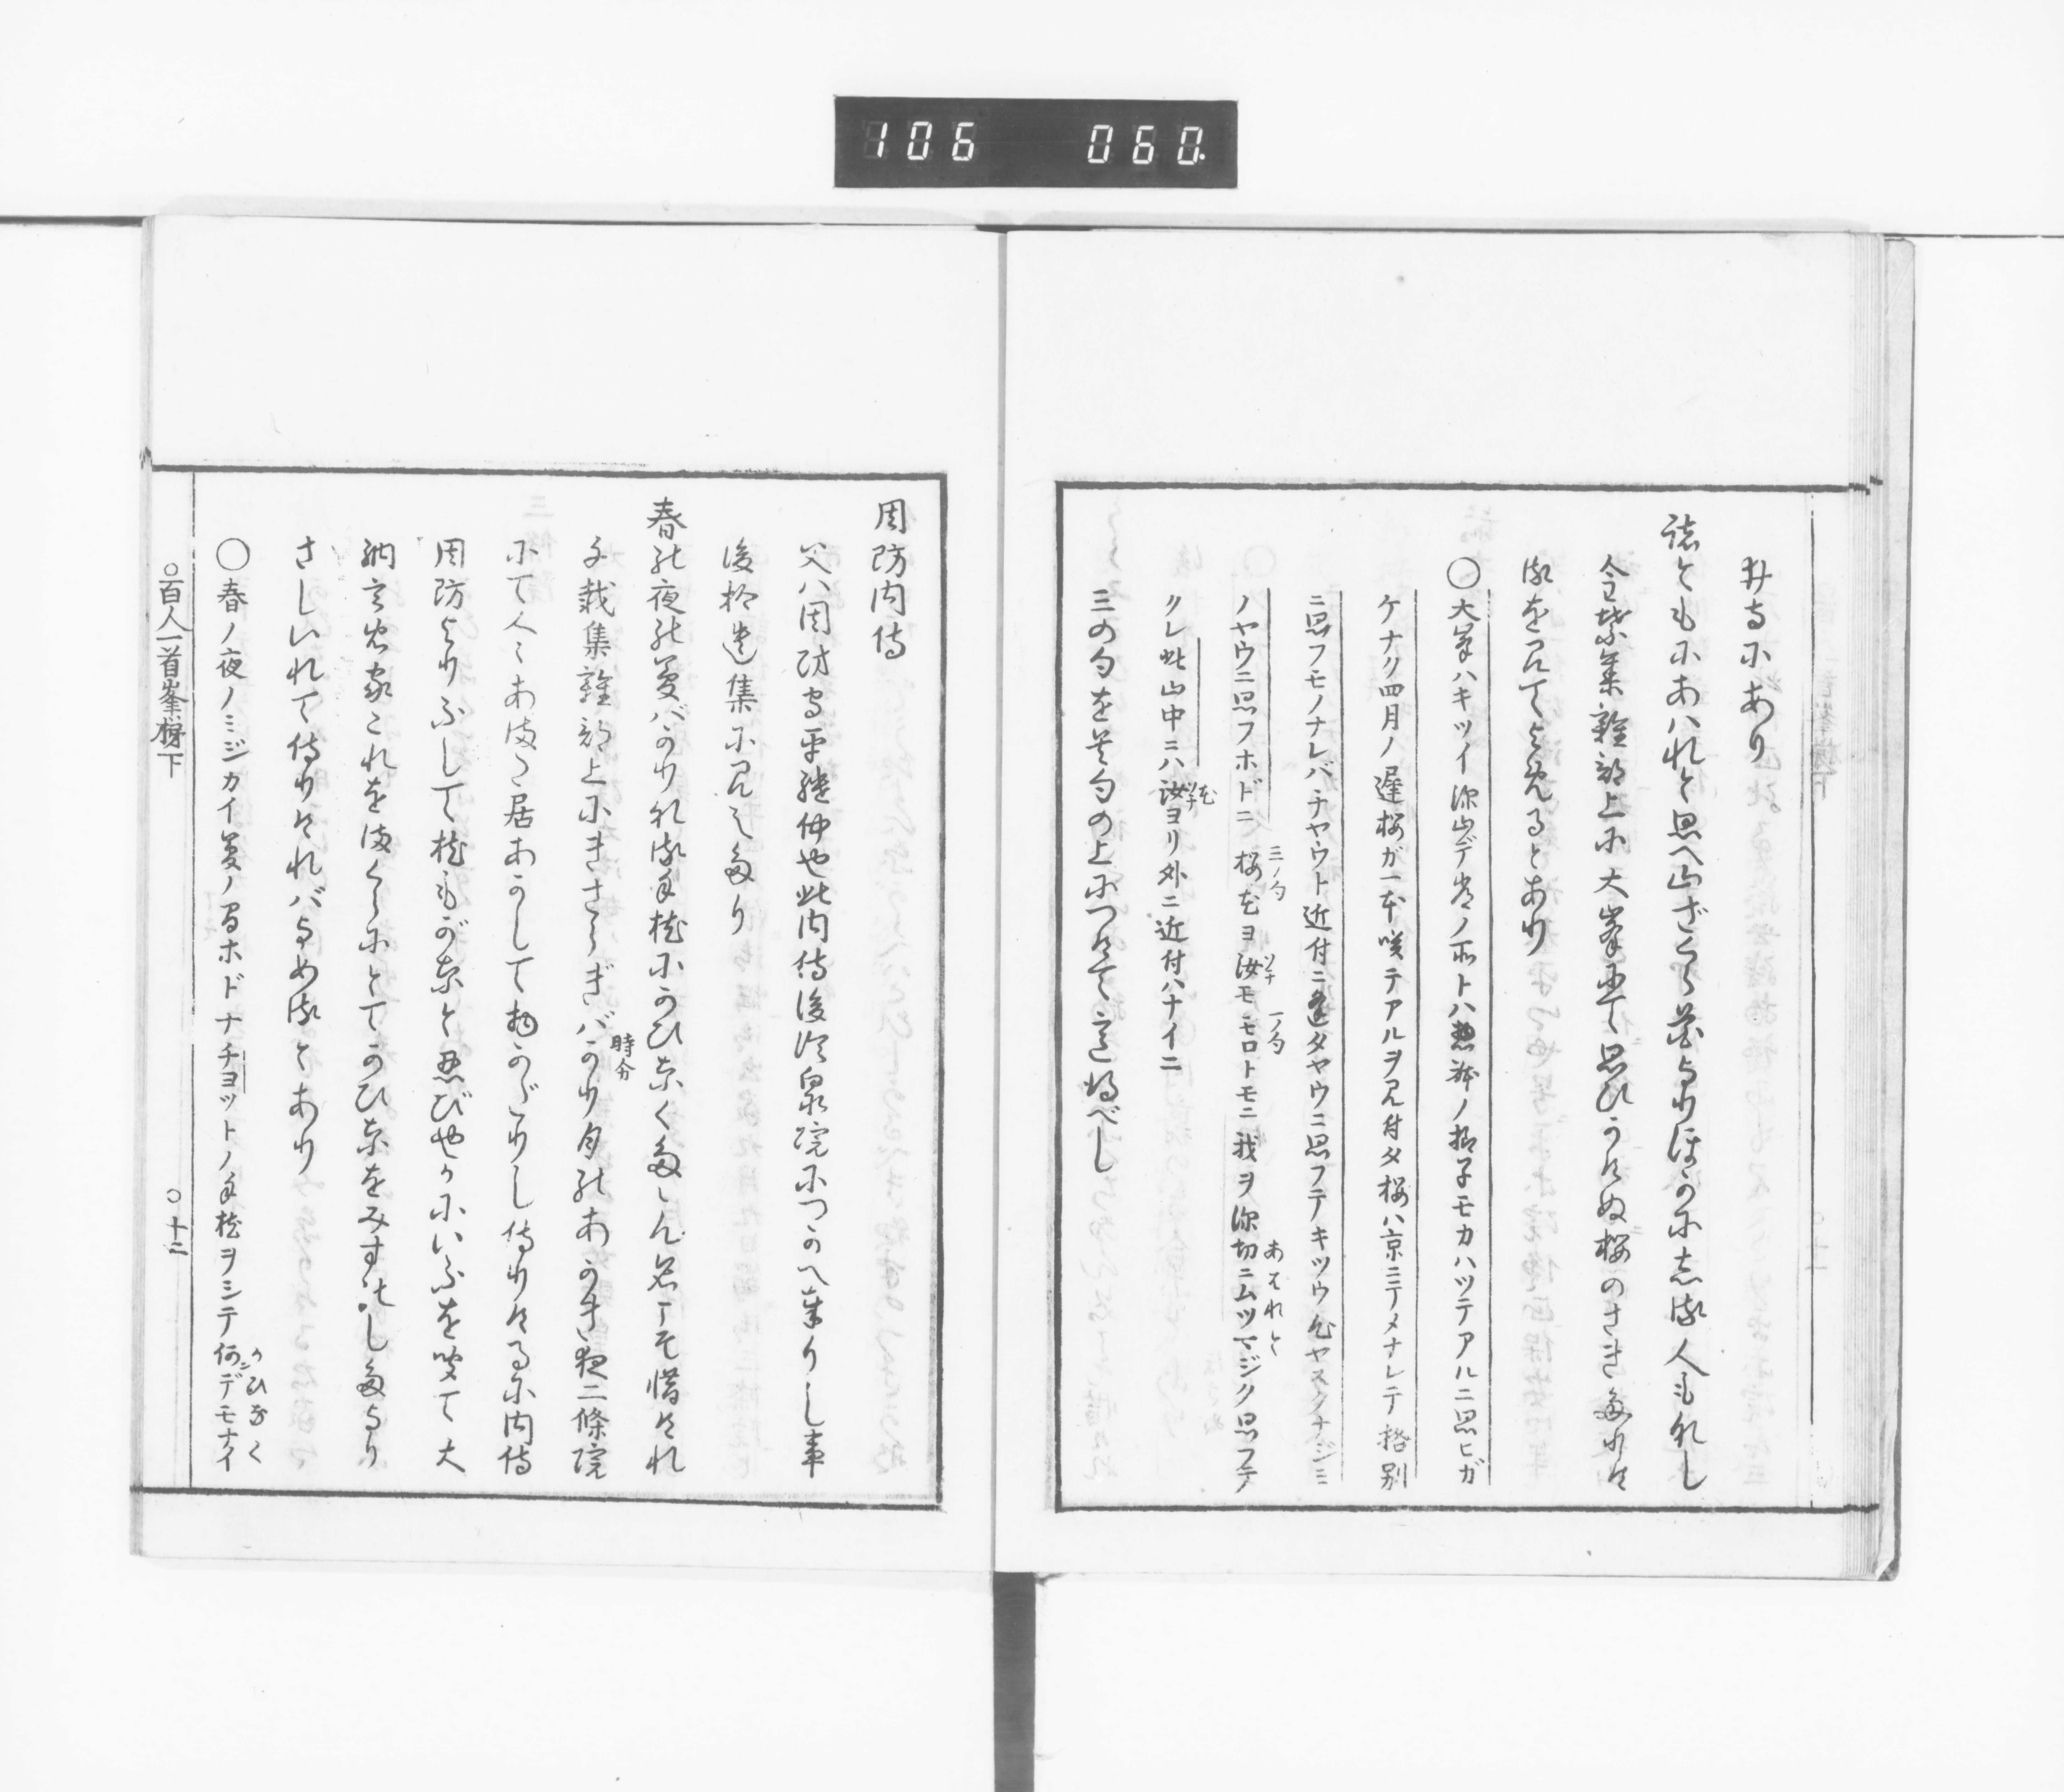 106 060
井寺にあり
諸ともにあハれと思へ山ざくら花より ほかに志る人もなし
金葉集雑部上に大峯にて思ひかけぬ桜のさき多りけ
るを見てよめるとあり
〇大峯ハキツイ深山デ常ノ所ト ハ惣躰ノ様子モカハツテアルニ思ヒガ
ケナク四月ノ遅桜ガ一本咲テアルヲ見付タ桜ハ京ニテメナレテ格別
ニ思フモノナレバチヤウト近付ニ逢タヤウニ思フテキツウ心ヤスクナジミ
ノヤウニ思フホドニ 桜花ヨ汝モモロトモニ我ヲ深切ニムツマジク思フテ
三ノ句
ソチ
一ノ句
あはれと
クレ此山中ニハ汝ヨリ外ニ近付ハナイニ
花
三の句を其句の上につけて意得べし
周防内侍
父ハ周防守平継仲也此内侍後冷泉院につかへ奉りし事
後拾遺集に見え多り
春の夜の夢バかりなる手枕にかひなく多ゝん名こそ惜けれ
千載集雑部上にきさらぎバかり月のあかき夜二條院
時分
にて人〻あまた居あかして物がたりし侍りけるに内侍
周防よりふして枕もがなと忍びやかにいふを聞て大
納言忠家これをまくらにとてかひなをみすの下多より
さしいれて侍りけれバよめるとあり
〇春ノ夜ノミジカイ夢ノ間ホドナチヨツトノ手枕ヲシテ何デモナイ
かひなく
〇百人一首峯梯下
〇十二